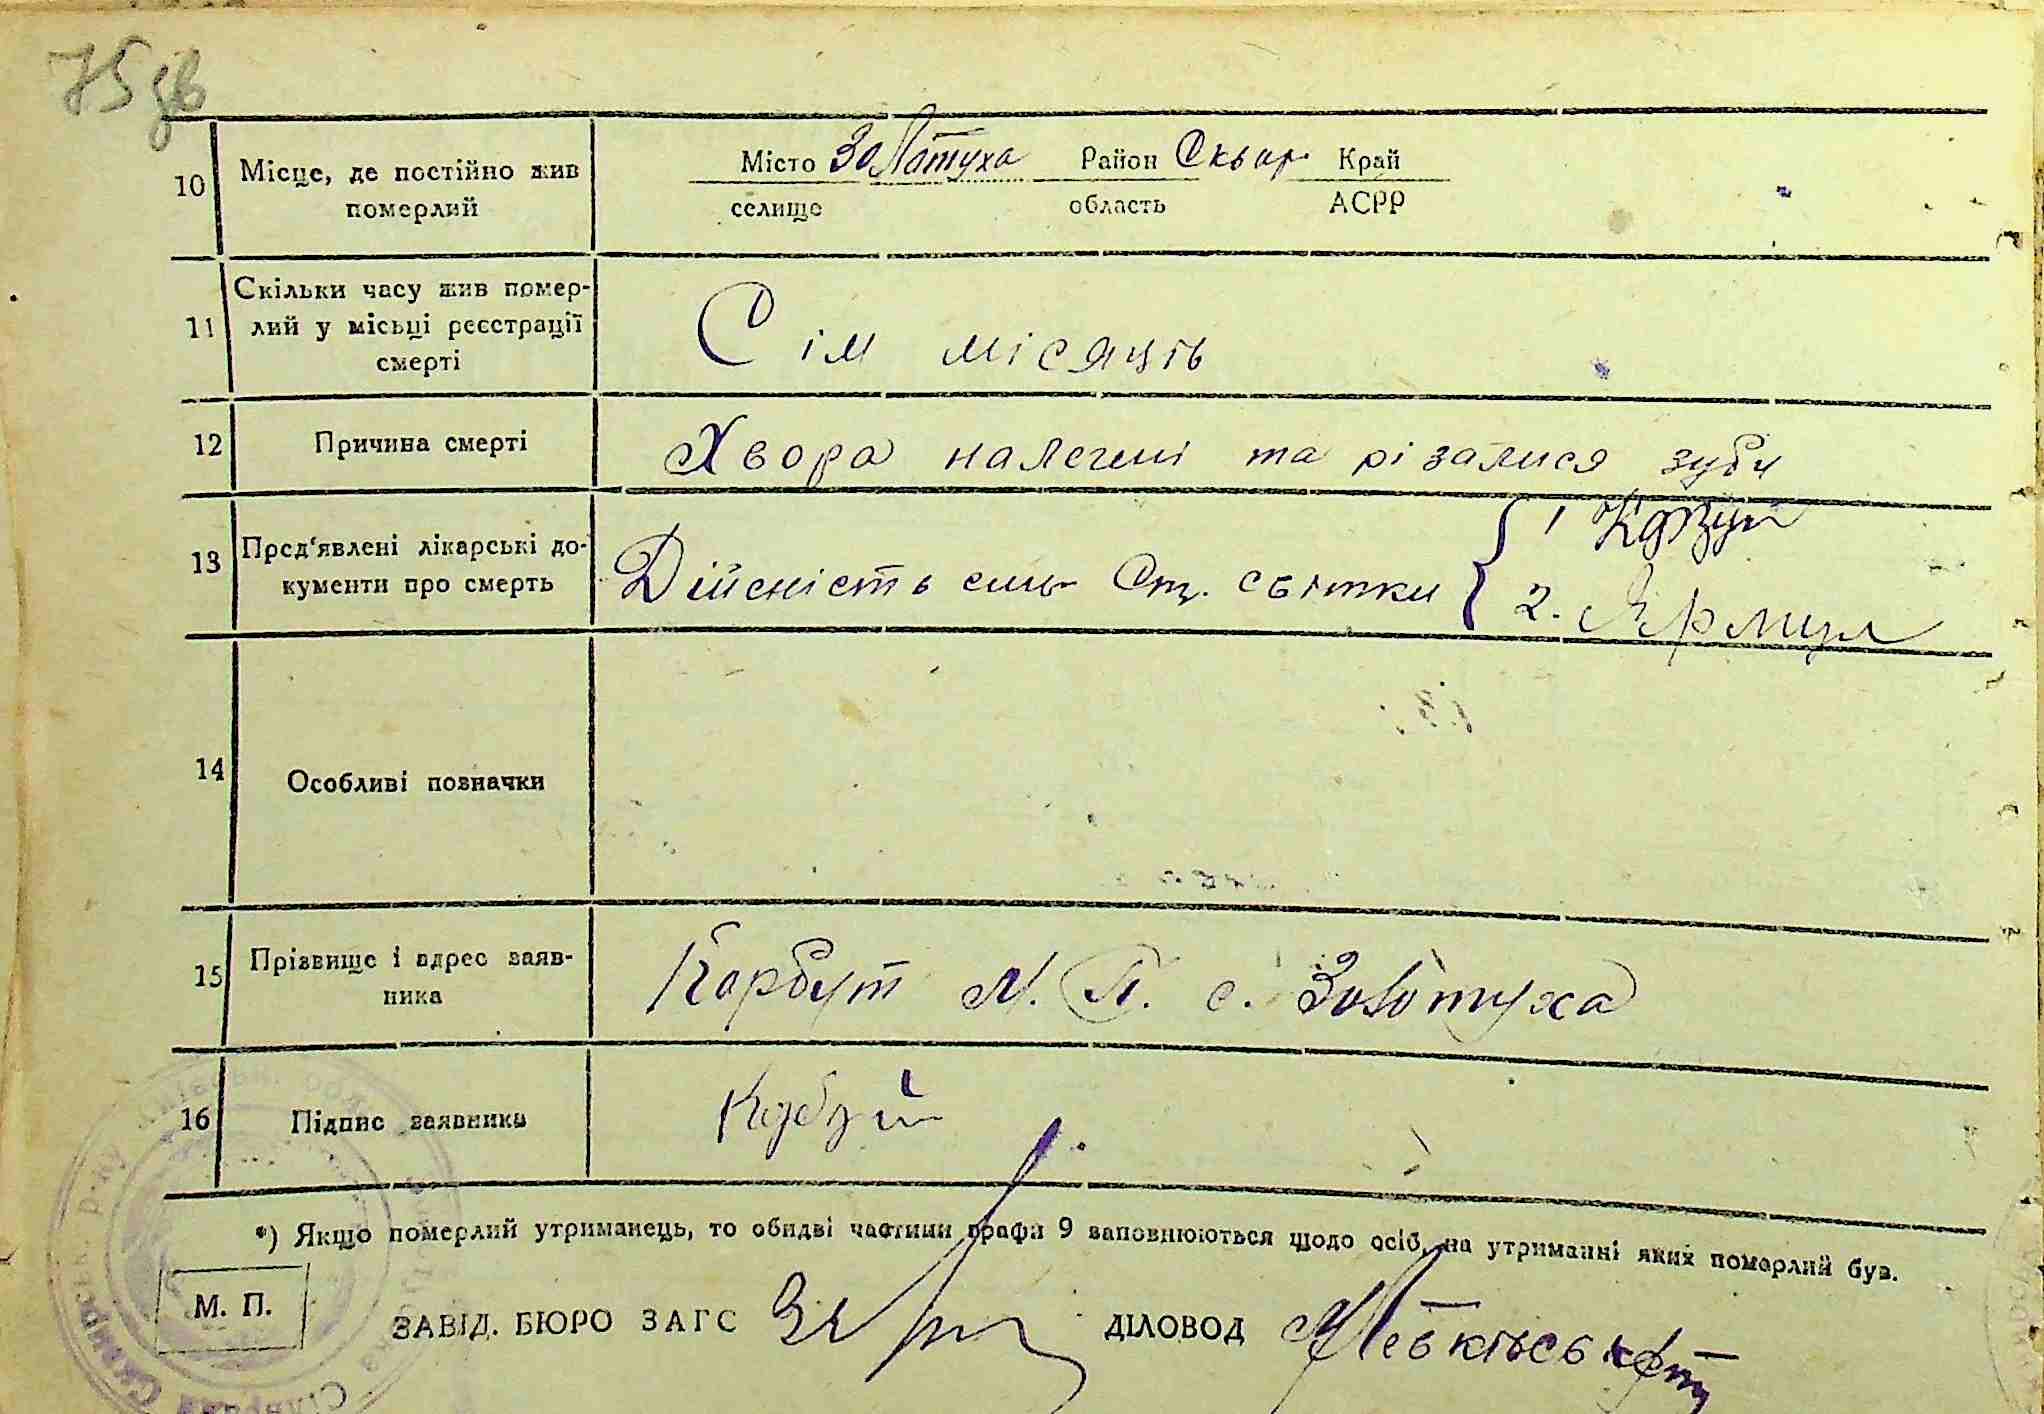 75 зв
10 Місце, де постійно жив померлий
Місто Золатуха Район Сквар Край
селище область АСРР
11 Скільки часу жив помер-
лий у місьці реєстрації
смерті
Сім місяців
12 Причина смерті
Хвора налегені та різалися зуби
13 Пред'явлені лікарські до-
кументи про смерть
Дійсність свідки { 1
2. Ярмул
14 Особливі позначки
15 Прізвище і адрес заяв-
ника
Корбут М. П. с. Золотуха
16 Підпис заявника
*) Якщо померлий утриманець, то обидві частини графи 9 заповнюються щодо осіб, на утриманні яких померлий був.
М. П.
ЗАВІД. БЮРО ЗАГС ДІЛОВОД